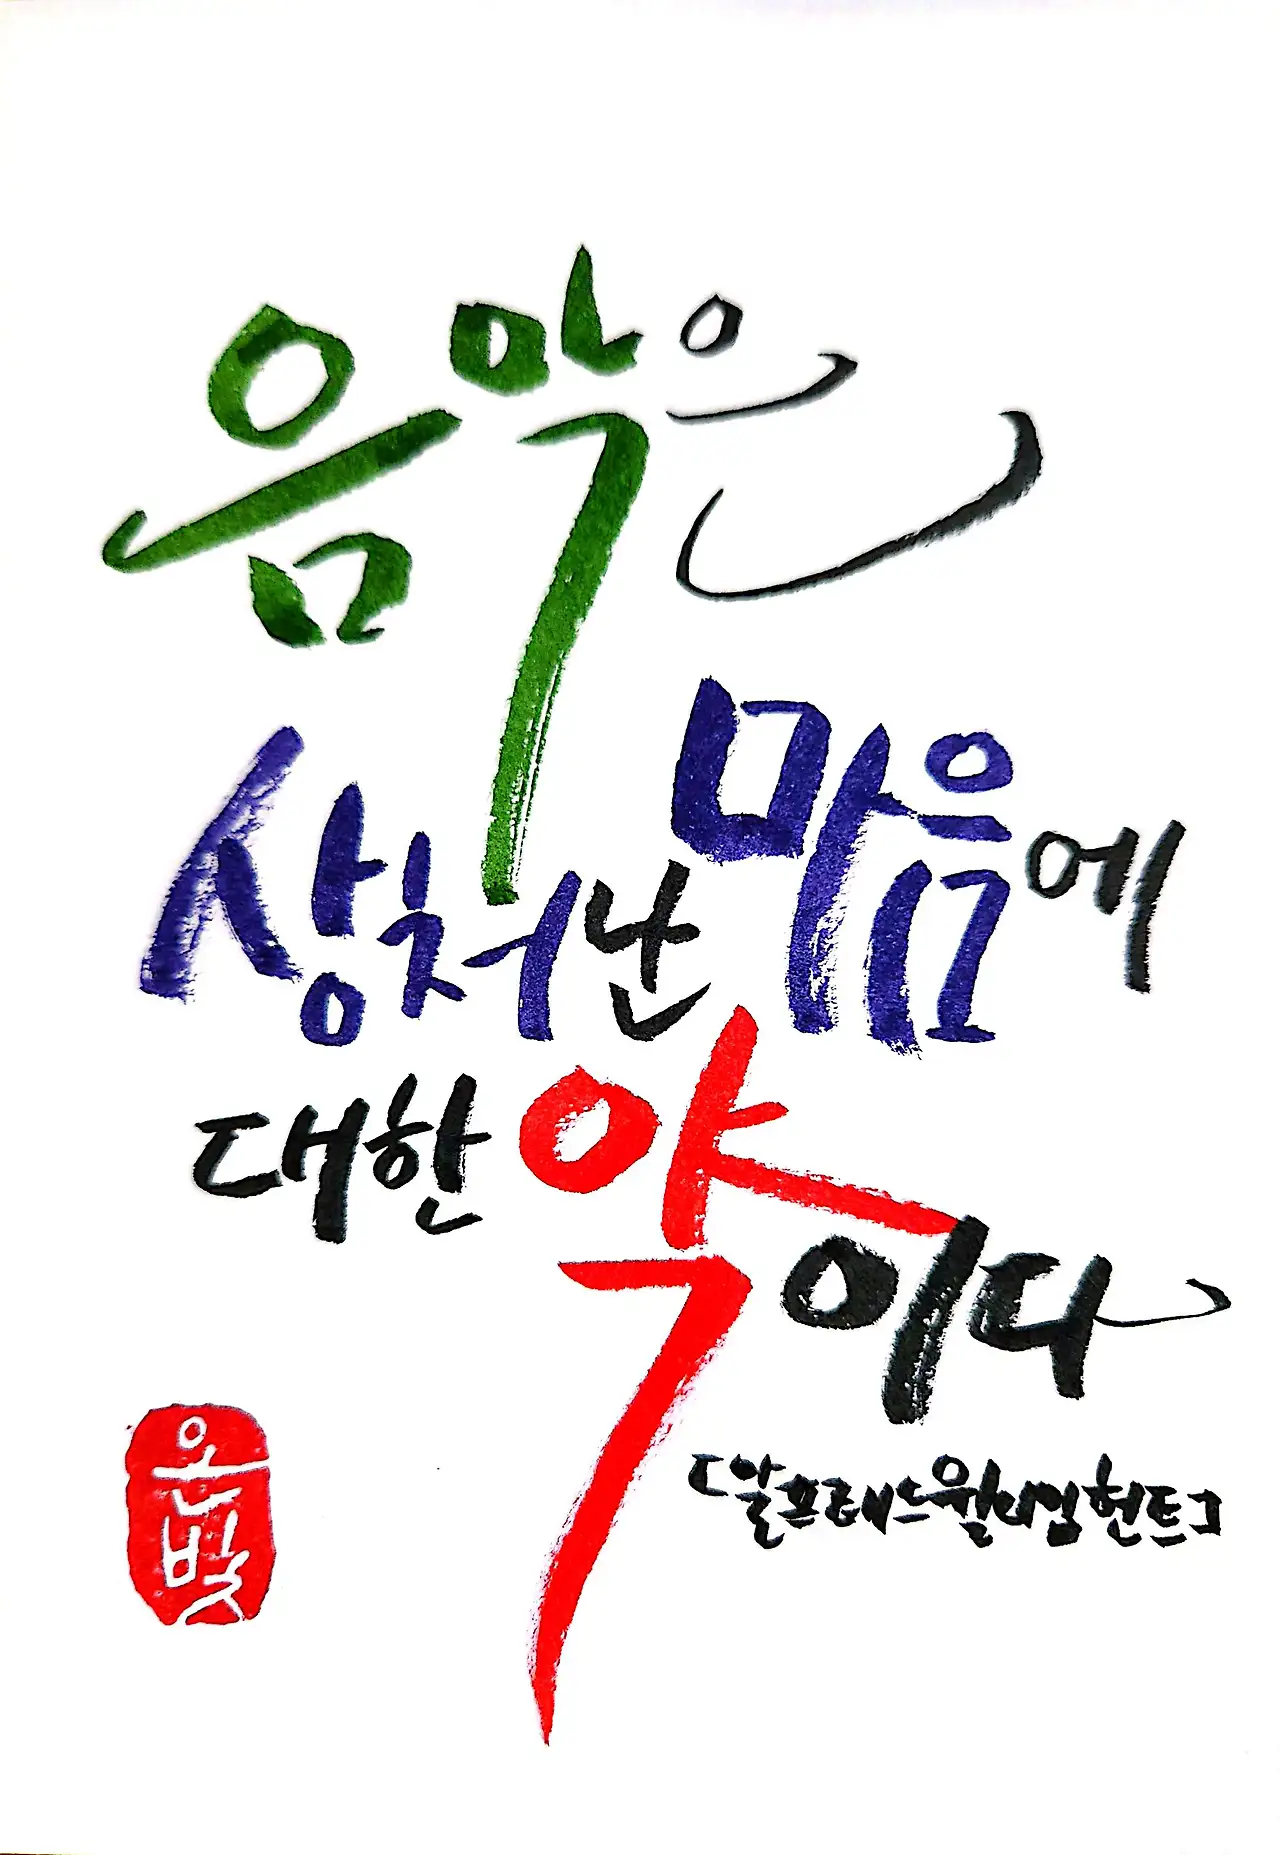 음악은
상처난 마음에
대한 약이다
「알프레드윌리엄헌트」
은빛